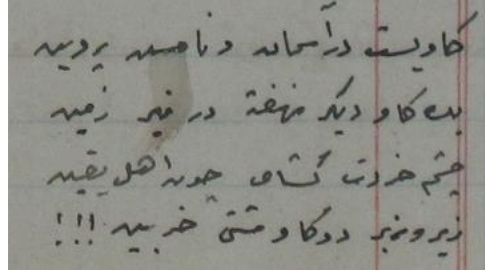 کاویست در آسمان و نامش پروین
یک کاو دیکر نهفته در زیر زمین
چشم خردت کشای چون اهل یقین
زیر و زبر دو کاو مشتی خر بین !!!